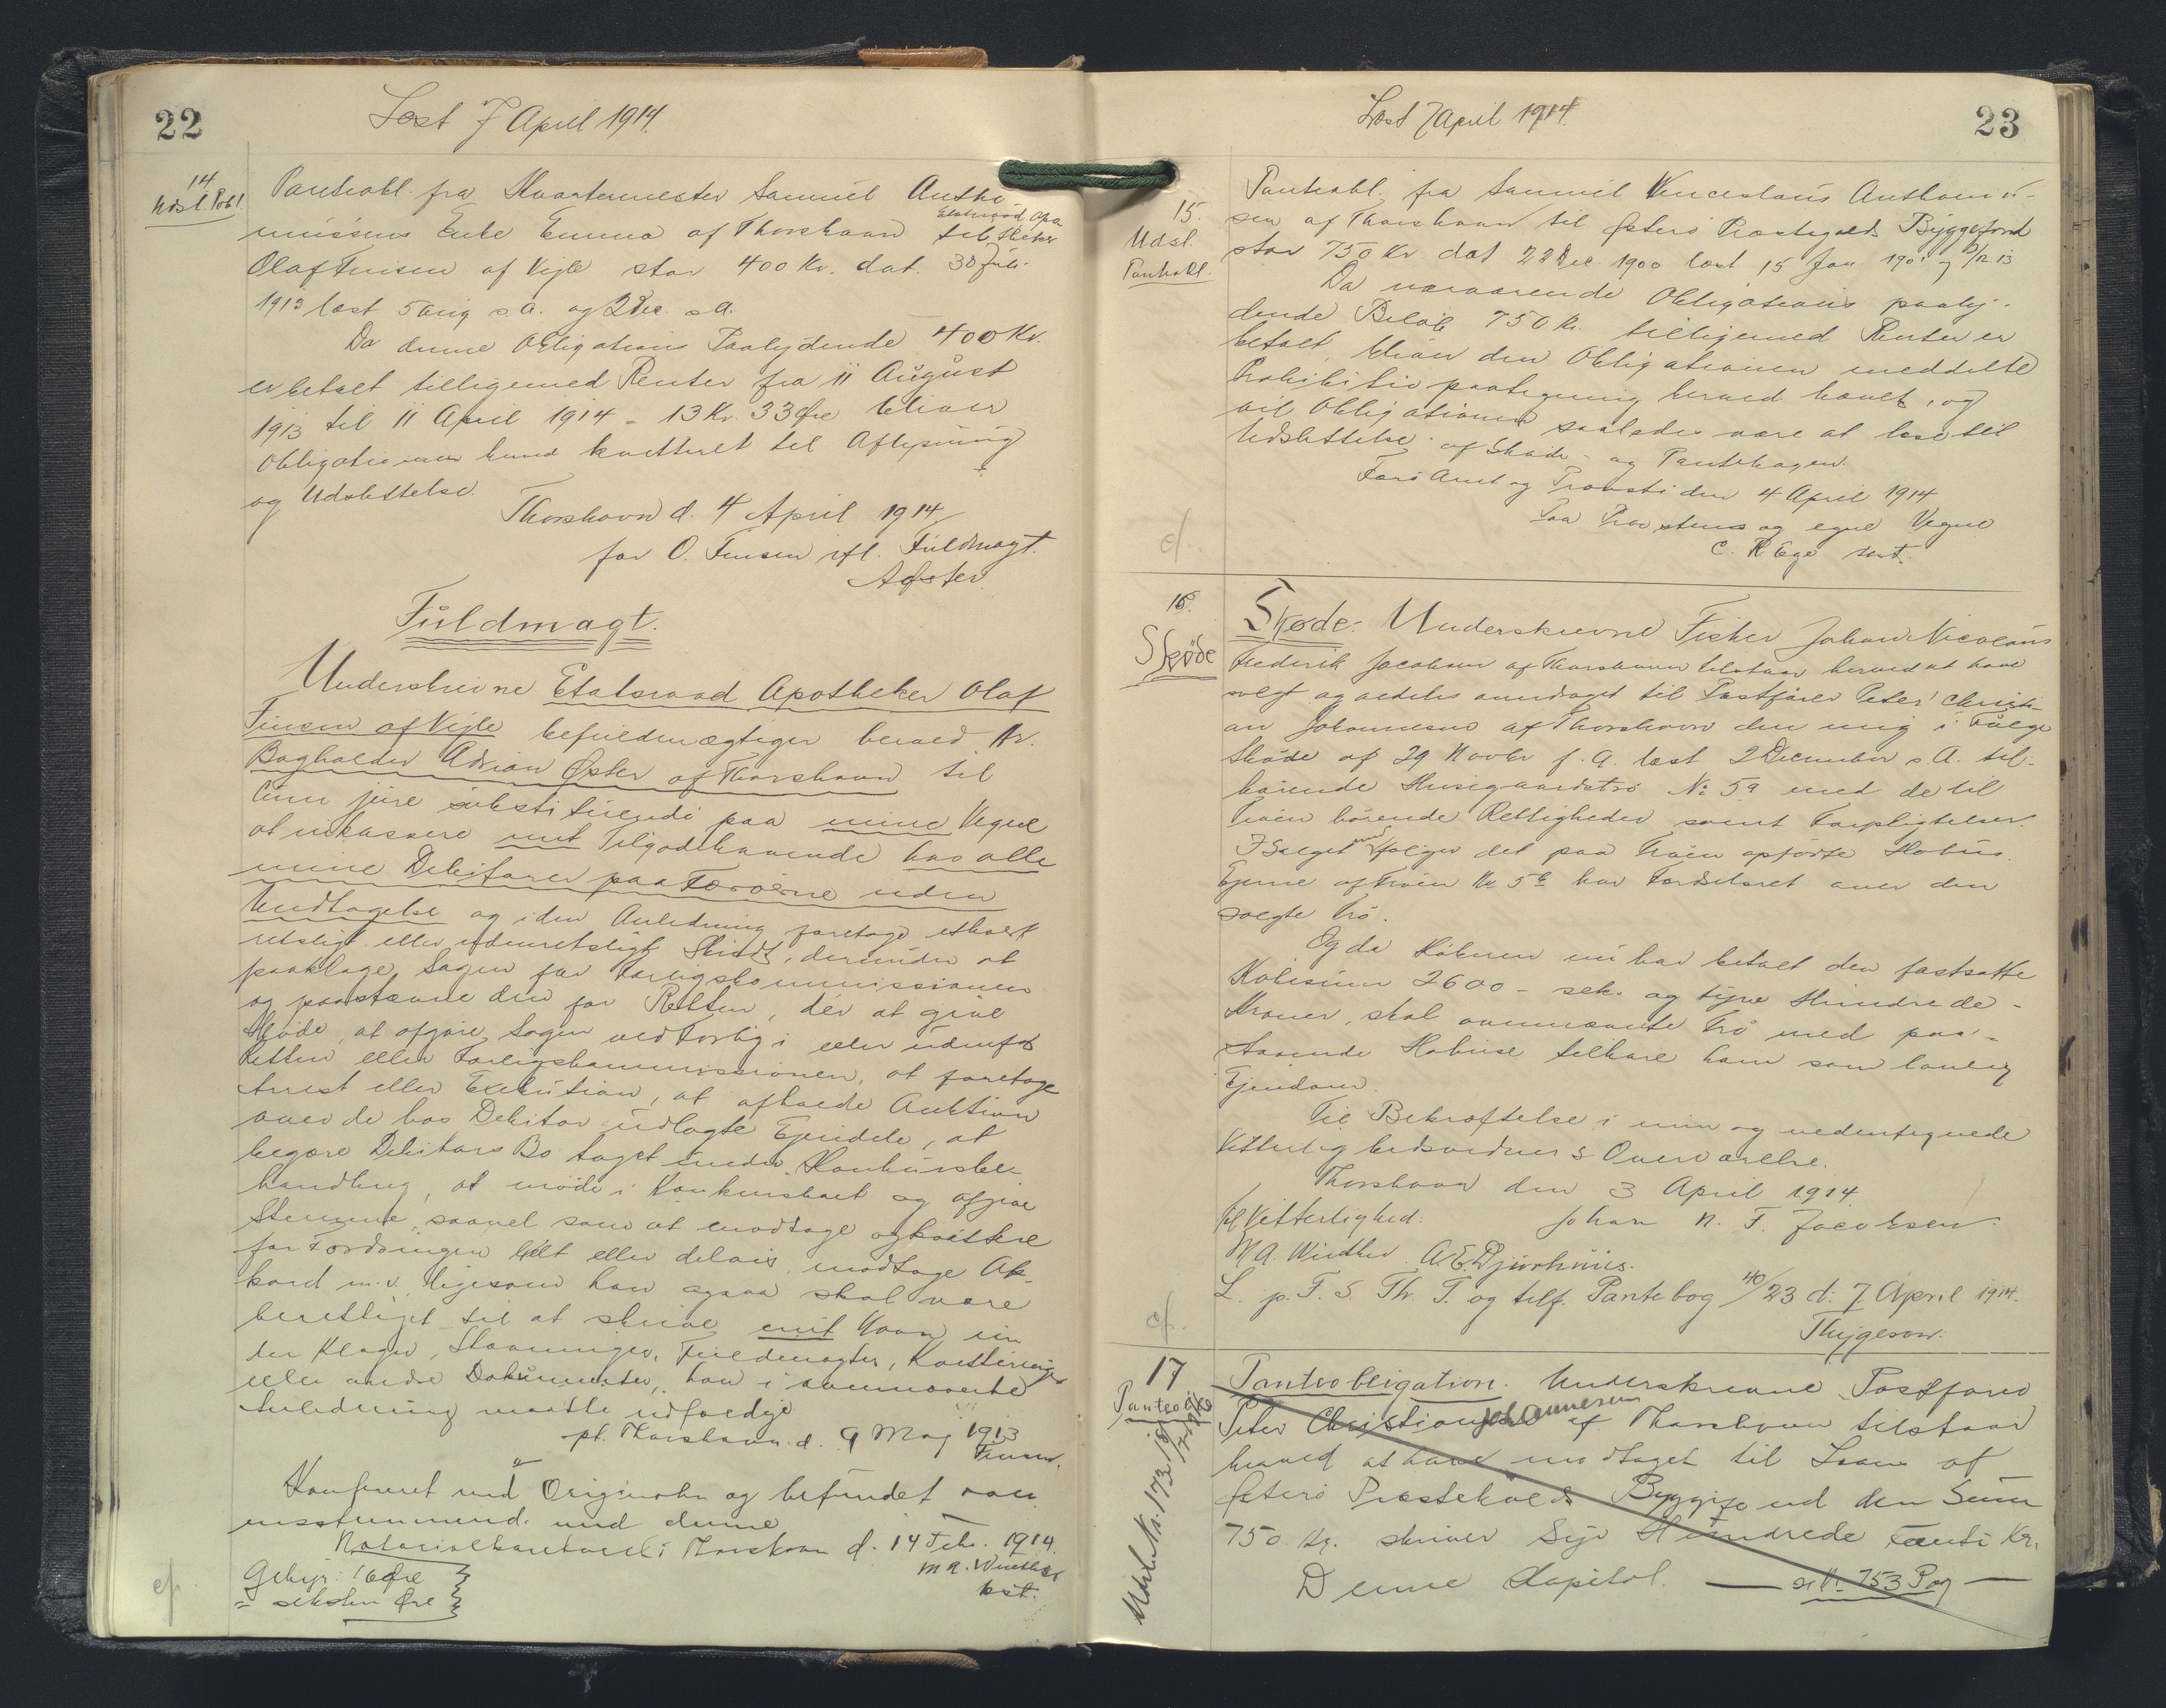 22
Læst 7 April 1914.
14
Udsl. Pobl.
Panteobl. fra Kvartermester Samuel Antho
niusens Enke Emma af Thorshavn til Etatsraad Apo
theker
Olaf Finsen af Vejle stor 400 Kr. dat. 30 Juli
1913 læst 5 Aug s.A. og 2 Dec. s.A.
Da denne Obligations Paalydende 400 Kr.
er betalt tilligemed Renter fra 11 August
1913 til 11 April 1914 = 13 Kr. 33 Øre bliver
Obligationen herved kvitteret til Aflysning
og Udslettelse.
Thorshavn d. 4 April 1914
for O. Finsen ifl. Fuldmagt.
A Øster
Fuldmagt.
Underskrevne Etatsraad Apotheker Olaf
Finsen af Vejle befuldmægtiger herved Hr.
Bogholder Adrian Øster af Thorshavn til
cum jure substituendi paa mine Vegne
at inkassere mit Tilgodehavende hos alle
mine Debitorer paa Færøerne uden
Undtagelse og i den Anledning foretage ethvert
retsligt eller udenretsligt Skridt, derunder at
paaklage Sagen for Forligskommissionen
og paastævne den for Retten, dér at give
Møde, at afgøre Sagen ved Forlig i eller udenfor
Retten eller Forligskommissionen, at foretage
Arrest eller Exekution, at afholde Auktion
over de hos Debitor udlagte Ejendele, at
begære Debitors Bo taget under Konkursbe-
handling, at møde i Konkursboet og afgive
Stemme, saavel som at modtage og kvittere
for Fordringen helt eller delvis, modtage Ak-
kord m.v. ligesom han ogsaa skal være
berettiget til at skrive mit Navn un
der Klager, Stævninger, Fuldmagter, Kvitteringer
eller andre Dokumenter, han i ovennævnte
Anledning maatte udfærdige
pt. Thorshavn d. 9 Maj 1913
Finsen.
Konfereret med Originalen og befundet over
ensstemmende med denne
Notarialkontoret i Thorshavn d. 14 Feb. 1914.
M A. Winther
kst.
Gebyr: 16 Øre
= seksten Øre
cf.
23
Læst 7 April 1914.
15.
Udsl.
Panteobl.
Panteobl. fra Samuel Venceslaus Anthoniu-
sen af Thorshavn til Østerø Præstegælds Byggefond
stor 750 Kr dat 22 Dec. 1900 læst 15 Jan 1901 og /12 13
Da nærværende Obligations paaly-
dende Beløb 750 Kr. tilligemed Renter er
betalt, bliver den Obligationen meddelte
Prohibitivpaategning herved hævet, og
vil Obligationen saaledes være at læse til
Udslettelse af Skøde- og Pantebogen.
Færø Amt og Provsti den 4 April 1914
Paa Provstens og egne Vegne
C. R Ege kst.
cf.
16.
Skøde
Skøde: Underskrevne Fisker Johan Nicolaus
Frederik Jacobsen af Thorshavn tilstaar herved at have
solgt og aldeles overdraget til Postfører Peter Christi-
an Johannesen af Thorshavn den mig i Følge
Skøde af 29 Novbr f.A. læst 2 December s.A. til-
hørende Husegaardstrø No 5a med de til
Trøen hørende Rettigheder samt Forpligtelser.
I Salget medfølger det paa Trøen opførte Hobus.
Ejerne af Trøen Nr 5b har Færdselsret over den
solgte Trø.
Og da Køberen nu har betalt den fastsatte
Købesum 2600 - seks og tyve Hundrede -
Kroner, skal ovennævnte Trø med paa-
staaende Hobuse tilhøre ham som lovlig
Ejendom.
Til Bekræftelse i min og nedentegnede
Vitterlighedsvidners Overværelse.
Thorshavn den 3 April 1914.
Til Vitterlighed: Johan N. F. Jacobsen.
M A. Winther A. E. Djurhuus.
L. p. F. S. Th. T. og tilf. Pantebog 40/23 d. 7 April 1914.
Thygesen.
cf.
17
Panteobl.
Panteobligation. Underskrevne Postfører
Peter Christiansen Johannesen af Thorshavn tilstaar
herved at have modtaget til Laan af
Østerø Præstekalds Byggefond den Sum
750 Kr. skriver Syv Hundrede Fænti Kr.
Denne Kapital. — se Nr. 753 Pag —